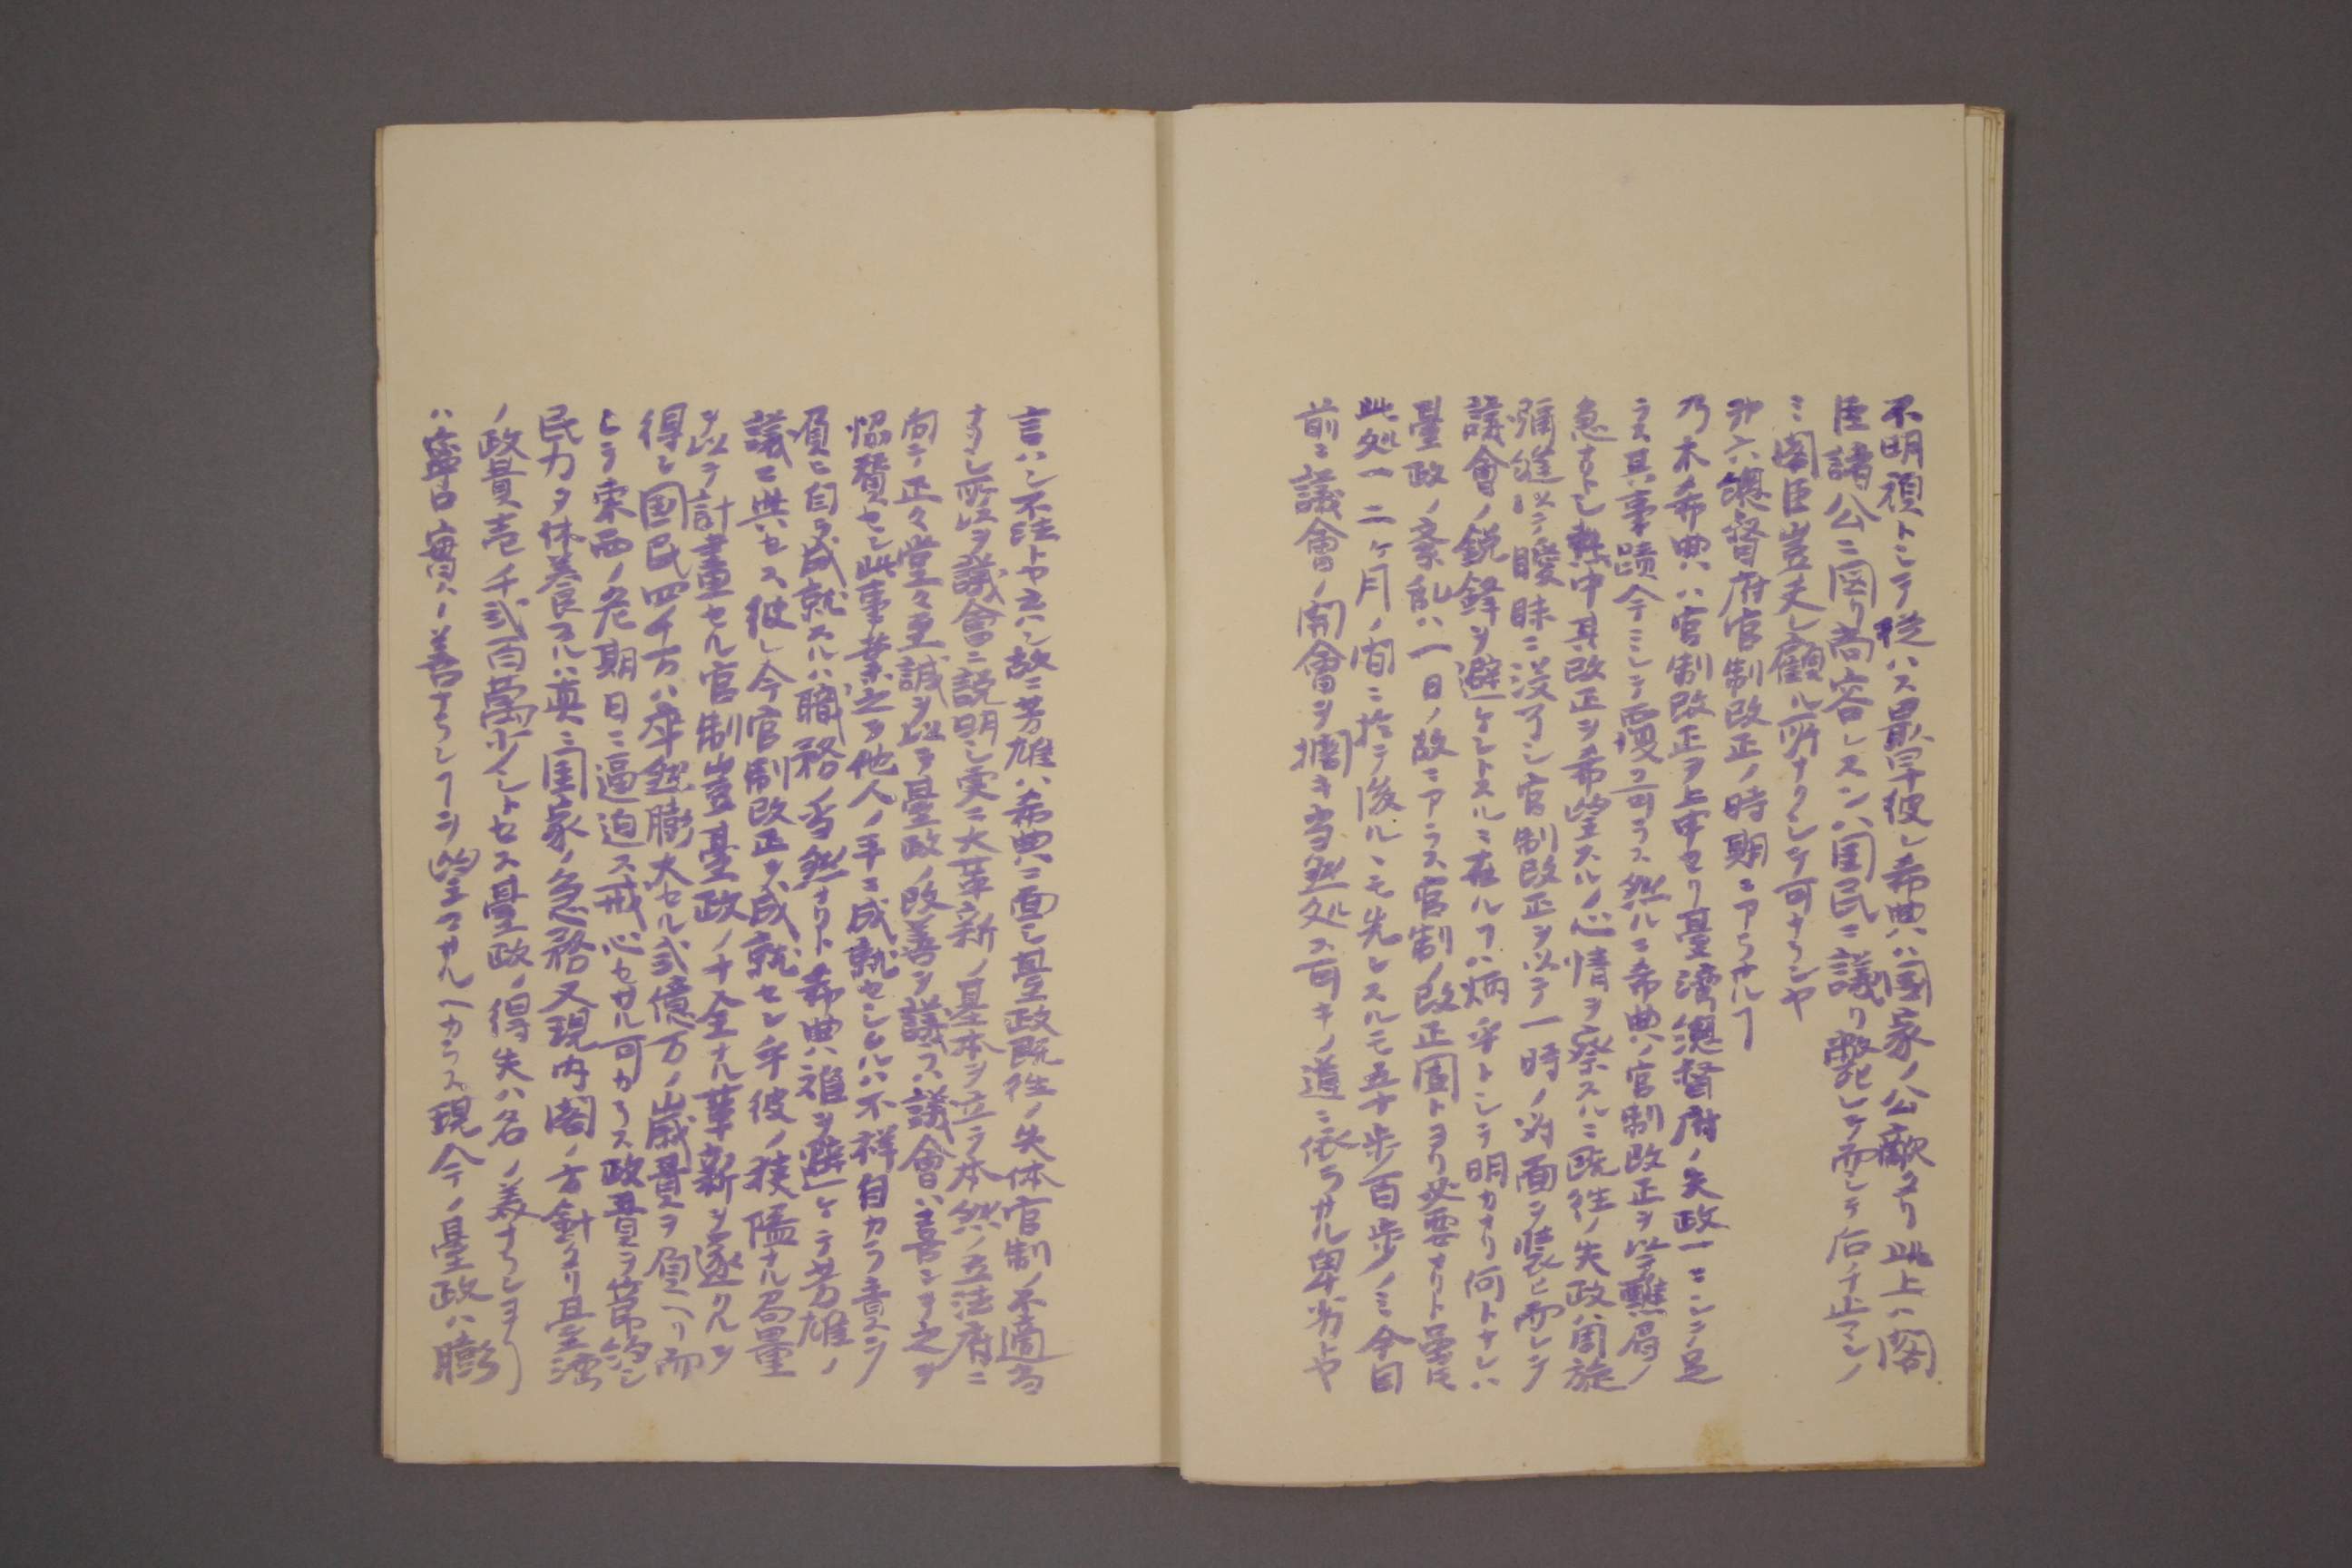 不明頑トシテ従ハス最早彼レ希典ハ国家ノ公敵タリ此上ハ閣
臣諸公ニ図リ尚容レスンハ国民ニ議リ斃レテ而シテ后チ止マンノ
ミ閣臣豈夫レ顧ル所ナクシテ可ナランヤ
第六總督府官制改正ノ時期ニアラサルヿ
乃木希典ハ官制改正ヲ上申セリ臺湾總督府ノ失政一ニシテ足
ラス其事蹟今ミシテ覆フ可ラス然ルニ希典ハ官制改正ヲ以テ難局ノ
急トシ熱中其改正ヲ希望スルノ心情ヲ察スルニ既往ノ失政ハ周旋
弥縫以テ曖昧ニ没了シ官制改正ヲ以テ一時ノ対面ヲ装ヒ而シテ
議會ノ鋭鋒ヲ避ケントスルニ在ルヿハ炳乎トシテ明カナリ何トナレハ
臺政ノ紊乱ハ一日ノ故ニアラス官制ノ改正固トヨリ必要ナリト雖氏
此処一二ケ月ノ間ニ於テ後ルヽモ先レスルモ五十歩百歩ノミ今日
前ニ議會ノ開會ヲ擱キ当然処ス可キノ道ニ依ラサル卑劣トヤ
言ハン不法トヤ云ハン故ニ芳雄ハ希典ニ面シ臺政既往ノ失体官制ノ不適当
ナリシ所以ヲ議會ニ説明シ更ニ大革新ノ基本ヲ立テ本然ノ立法府ニ
向テ正々堂々至誠ヲ以テ臺政ノ改善ヲ議ス議會ハ喜ンテ之ヲ
協賛セン此事業之ヲ他人ノ手ニ成就セシムルハ不祥自カラ責ヲ
負ヒ自ラ成就スルハ職務ノ当然ナリト希典ハ雄ヲ避ケテ芳雄ノ
議ニ與セス彼レ今官制改正ヲ成就セン乎彼ノ狭隘ナル局量
ヲ以テ計畫セル官制豈臺政ノ十全ナル革新ヲ遂クルヲ
得ン国民四千万ハ卒然膨大セル弐億万ノ歳費ヲ負ヘリ而
シテ東西ノ危期日ニ逼迫ス戒心セサル可カラス政費ヲ節約シ
民力ヲ休養スルハ真ニ国家ノ急務又現内閣ノ方針タリ臺湾
ノ政費壱千弐百萬少シトセス臺政ノ得失ハ名ノ美ナランヨリ
ハ寧口實ノ善ナランヿヲ望マサルヘカラス現今ノ臺政ハ膨